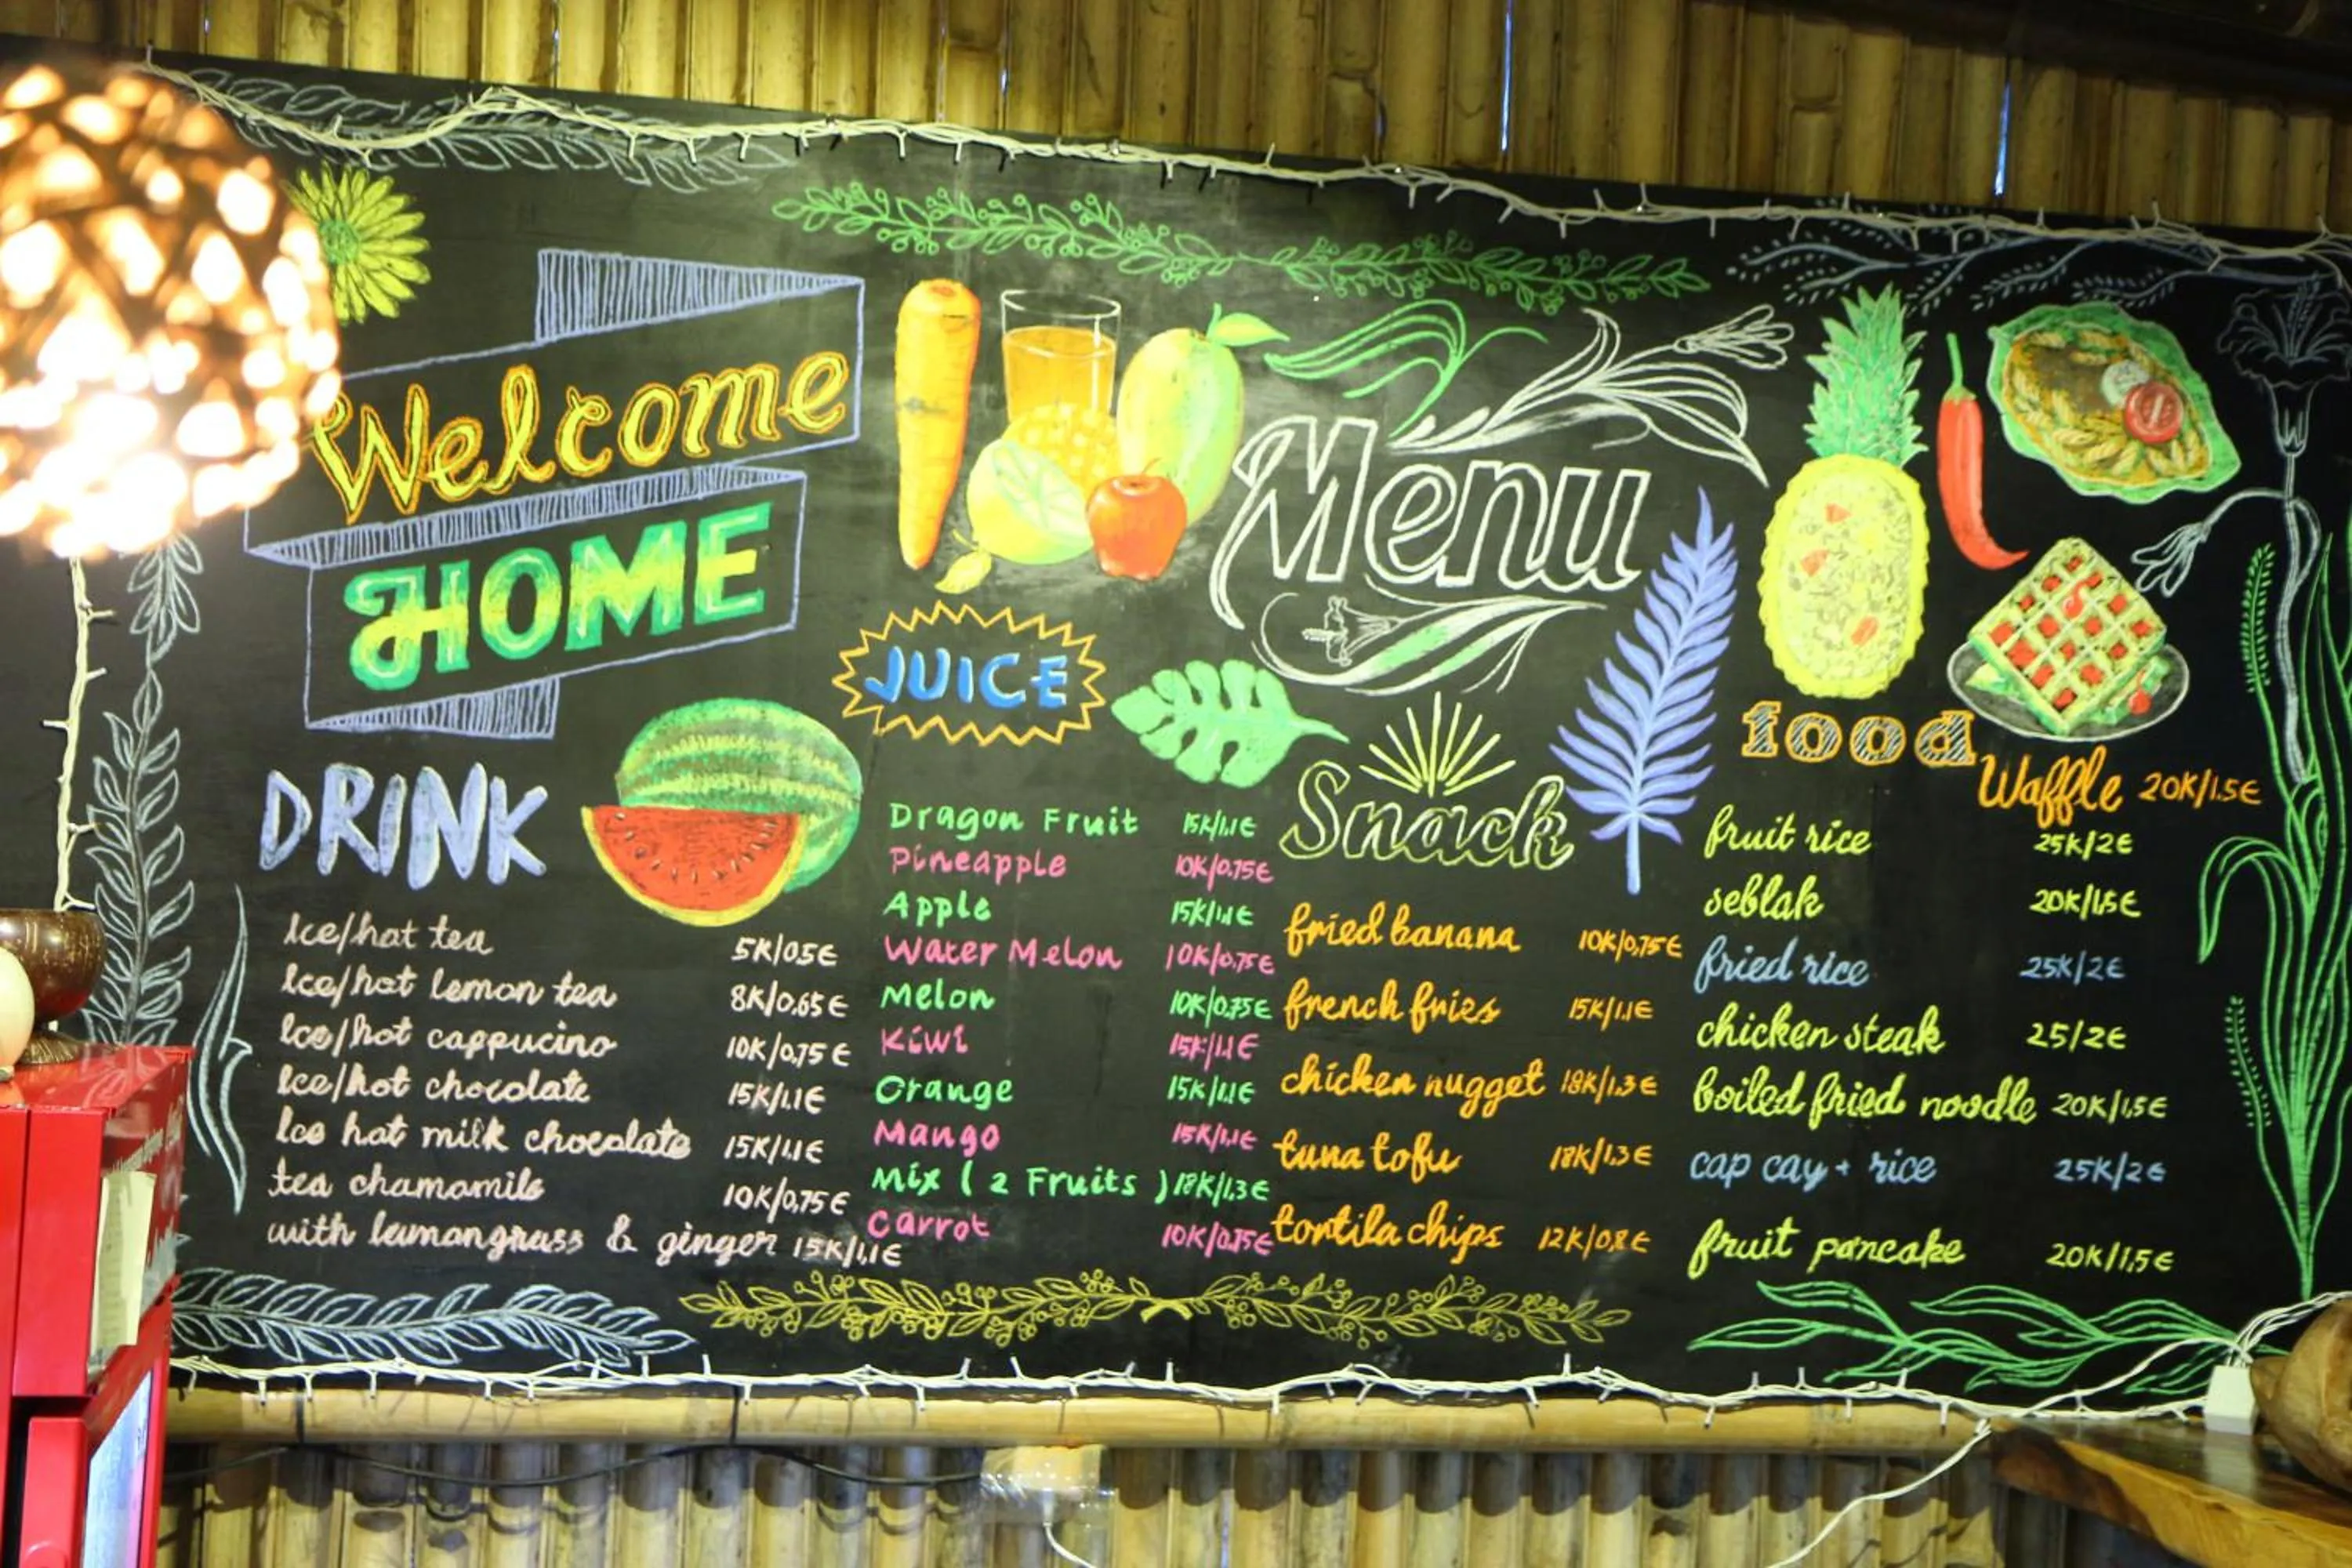 Welcome
HOME
Menu
DRINK
Ice/hot tea 5K/05€
Ice/hot lemon tea 8K/0,65€
Ice/hot cappucino 10K/0,75€
Ice/hot chocolate 15K/1,1€
Ice hot milk chocolate 15K/1,1€
tea chamomile 10K/0,75€
with lemongrass & ginger 15K/1,1€
JUICE
Dragon Fruit 15K/1,1€
Pineapple 10K/0.75€
Apple 15K/1,1€
Water Melon 10K/0.75€
Melon 10K/0.75€
Kiwi 15K/1,1€
Orange 15K/1,1€
Mango 15K/1,1€
Mix ( 2 Fruits ) 18K/1,3€
Carrot 10K/0,75€
Snack
fried banana 10K/0,75€
french fries 15K/1,1€
chicken nugget 18K/1,3€
tuna tofu 18K/1,3€
tortila chips 12K/0,8€
food
Waffle 20K/1.5€
fruit rice 25K/2€
seblak 20K/1,5€
fried rice 25K/2€
chicken steak 25/2€
boiled fried noodle 20K/1,5€
cap cay + rice 25K/2€
fruit pancake 20K/1,5€